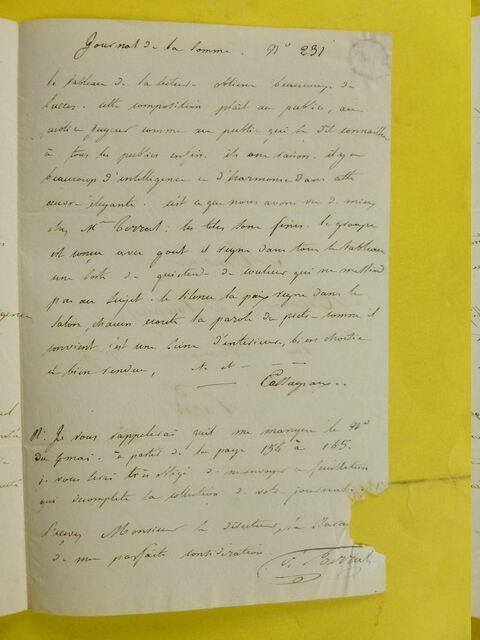 Journal de la Somme. N° 231
le tableau de la lecture obtient beaucoup de
succès. cette composition plait au public, au
public
à tous les publics enfin. ils ont raison. il y a
beaucoup d'intelligence et d'harmonie dans cette
œuvre élégante. c'est ce que nous avons vu de mieux
chez Mr Terral. les têtes sont fines. le groupe
est conçu avec gout il règne dans tout le tableau
une sorte de quiétude de couleur qui ne messied
pas au sujet. le silence la paix règne dans le
salon, chacun écoute la parole du poète comme il
convient c'est une scène d'intérieur, bien choisie
et bien rendue,
N. Je vous rappelerai qu'il me manque le N°
du 4 mai. à partir de la page 156 à 165.
je vous serai très obligé de m'envoyer ce feuilleton
qui incomplète la collection de votre journal.
Recevez Monsieur le directeur,
de ma parfaite considération.